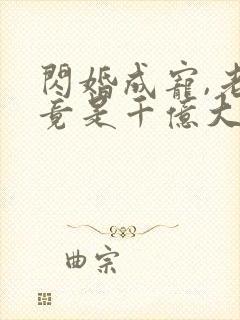 閃婚成寵,老
竟是千億大
曲宗